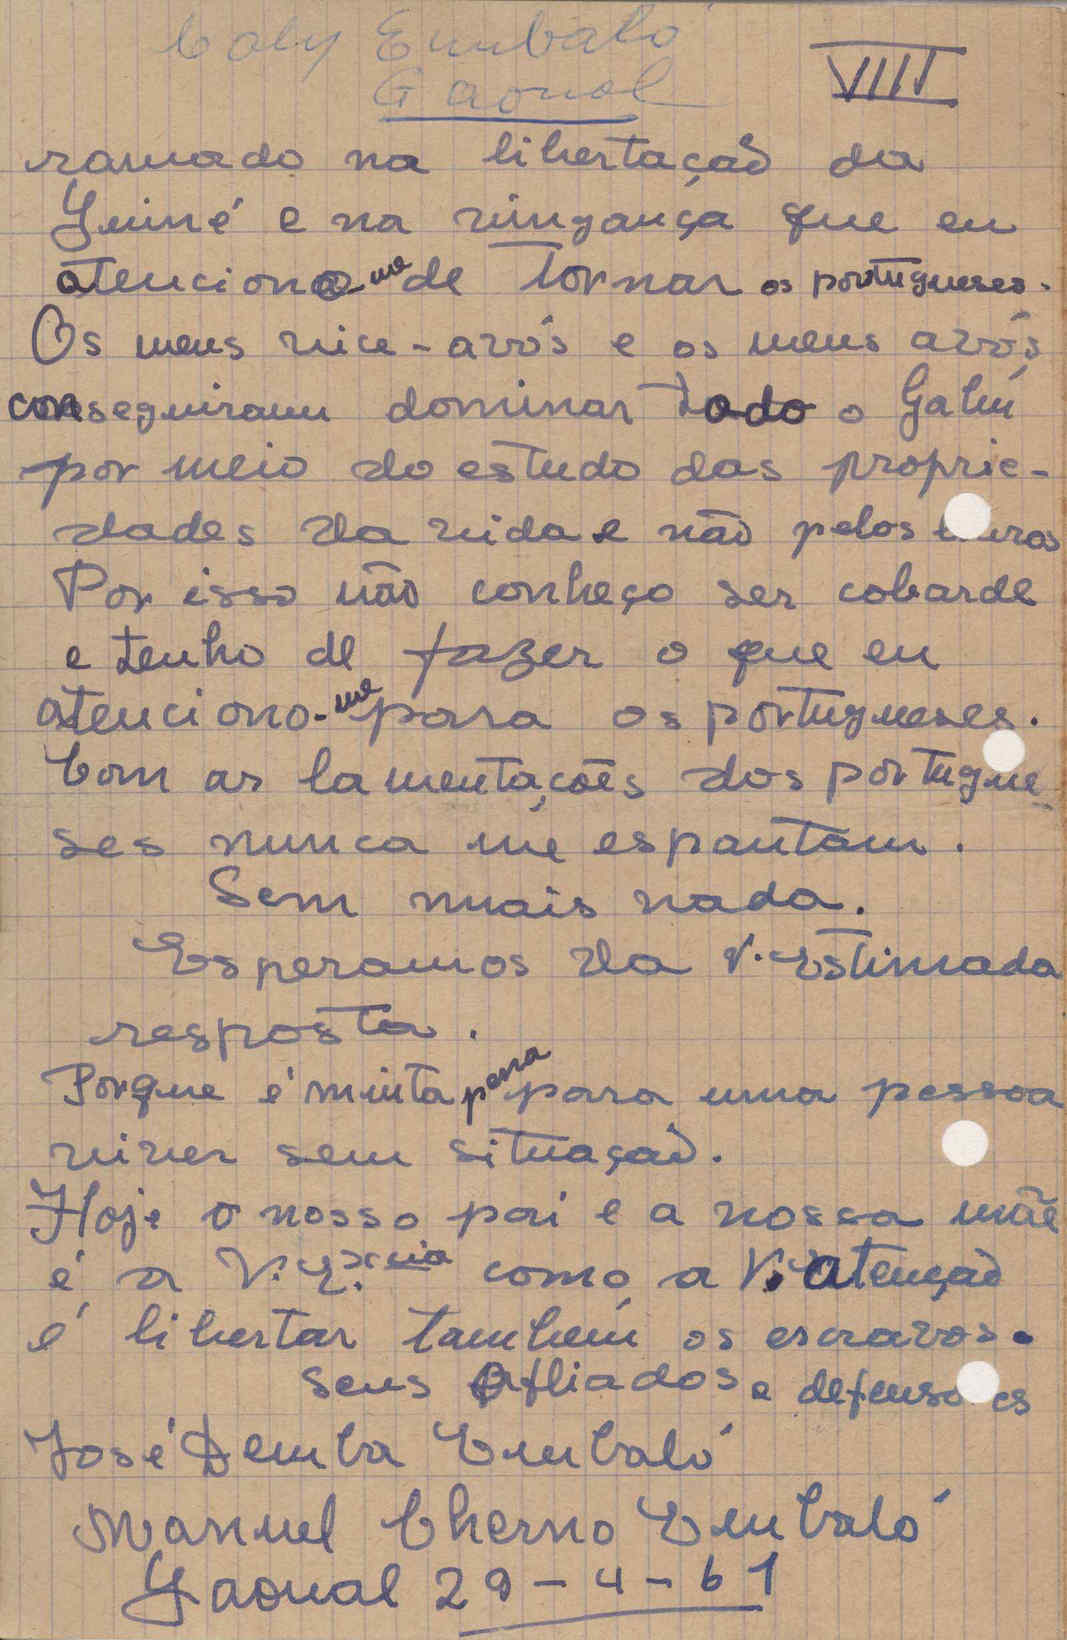 Coly Embaló
Gaoual
VIII
ramado na libertação da
Guiné e na vingança que eu
atenciono-me de tornar os portugueses.
Os meus vice-avós e os meus avós
conseguiram dominar todo o Gabú
por meio do estudo das proprie-
dades da vida e não pelos
Por isso não conheço ser cobarde
e tenho de fazer o que eu
atenciono-me para os portugueses.
Com as lamentações dos portugue-
ses nunca me espantam.
Sem mais nada.
Esperamos da V. Estimada
resposta.
Porque é muita pena para uma pessoa
viver sem situação.
Hoje o nosso pai e a nossa mãe
é a V. Excia como a V. atenção
é libertar também os escravos.
Seus afliados e defensores
José Demba Embaló
Manuel Cherno Embaló
Gaoual 29-4-61